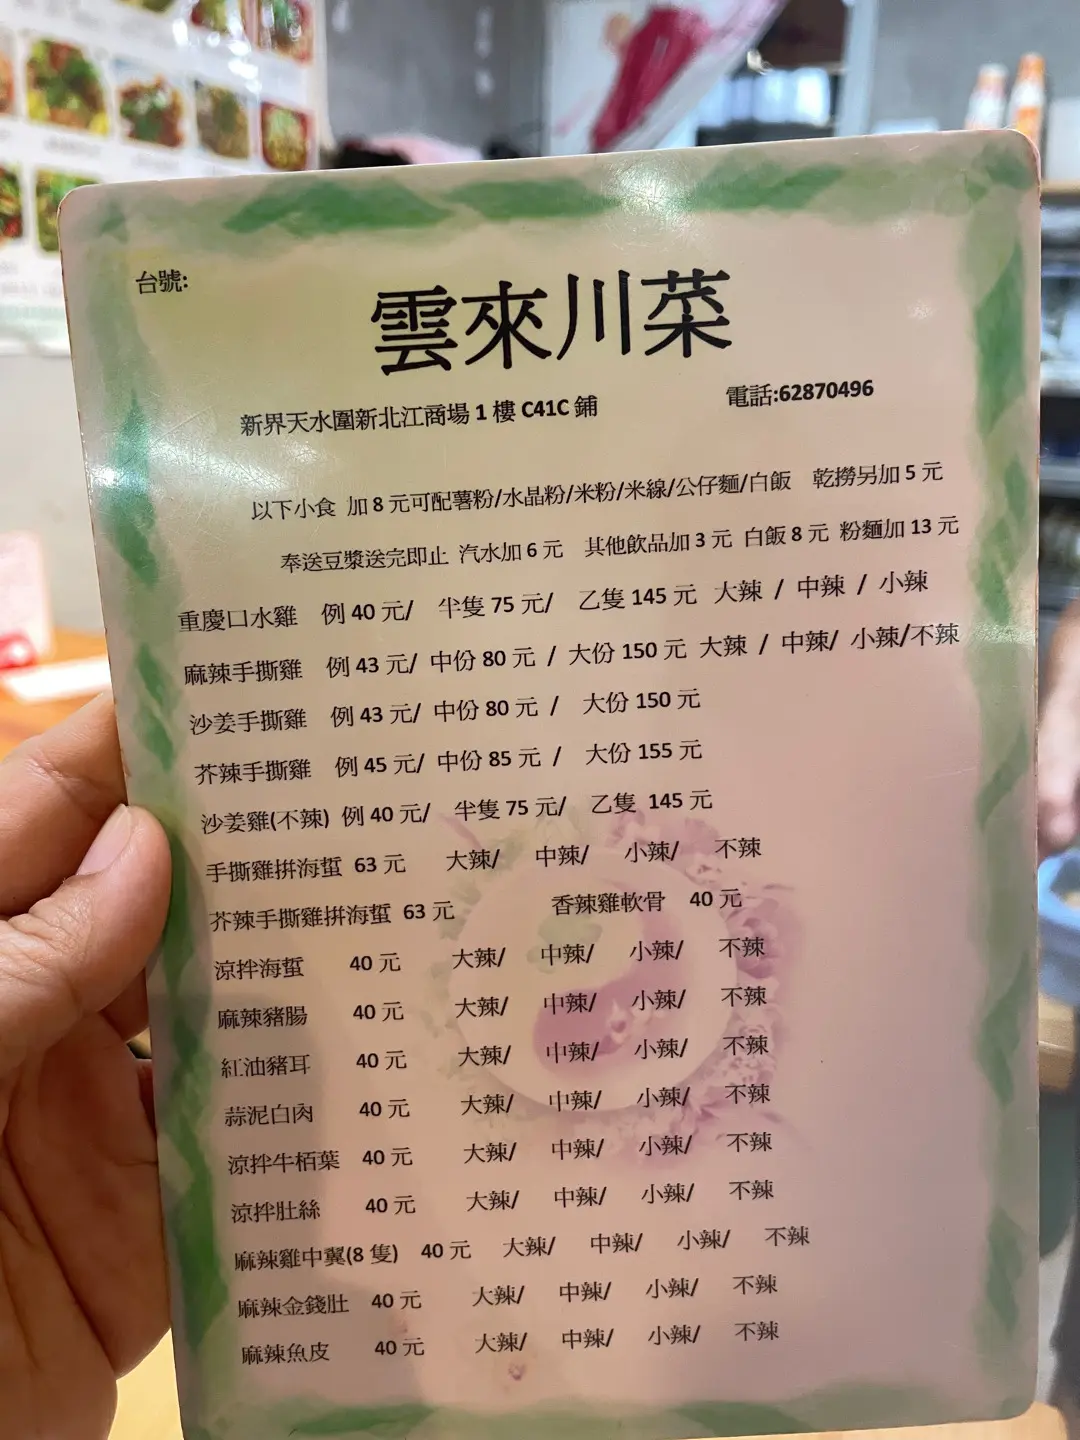 台號:
雲來川菜
新界天水圍新北江商場 1 樓 C41C 鋪 電話:62870496
以下小食 加 8 元可配薯粉/水晶粉/米粉/米線/公仔麵/白飯 乾撈另加 5 元
奉送豆漿送完即止 汽水加 6 元 其他飲品加 3 元 白飯 8 元 粉麵加 13 元
重慶口水雞 例 40 元/ 半隻 75 元/ 乙隻 145 元 大辣 / 中辣 / 小辣
麻辣手撕雞 例 43 元/ 中份 80 元 / 大份 150 元 大辣 / 中辣/ 小辣/不辣
沙姜手撕雞 例 43 元/ 中份 80 元 / 大份 150 元
芥辣手撕雞 例 45 元/ 中份 85 元 / 大份 155 元
沙姜雞(不辣) 例 40 元/ 半隻 75 元/ 乙隻 145 元
手撕雞拼海蜇 63 元 大辣/ 中辣/ 小辣/ 不辣
芥辣手撕雞拼海蜇 63 元 香辣雞軟骨 40 元
涼拌海蜇 40 元 大辣/ 中辣/ 小辣/ 不辣
麻辣豬腸 40 元 大辣/ 中辣/ 小辣/ 不辣
紅油豬耳 40 元 大辣/ 中辣/ 小辣/ 不辣
蒜泥白肉 40 元 大辣/ 中辣/ 小辣/ 不辣
涼拌牛栢葉 40 元 大辣/ 中辣/ 小辣/ 不辣
涼拌肚絲 40 元 大辣/ 中辣/ 小辣/ 不辣
麻辣雞中翼(8 隻) 40 元 大辣/ 中辣/ 小辣/ 不辣
麻辣金錢肚 40 元 大辣/ 中辣/ 小辣/ 不辣
麻辣魚皮 40 元 大辣/ 中辣/ 小辣/ 不辣